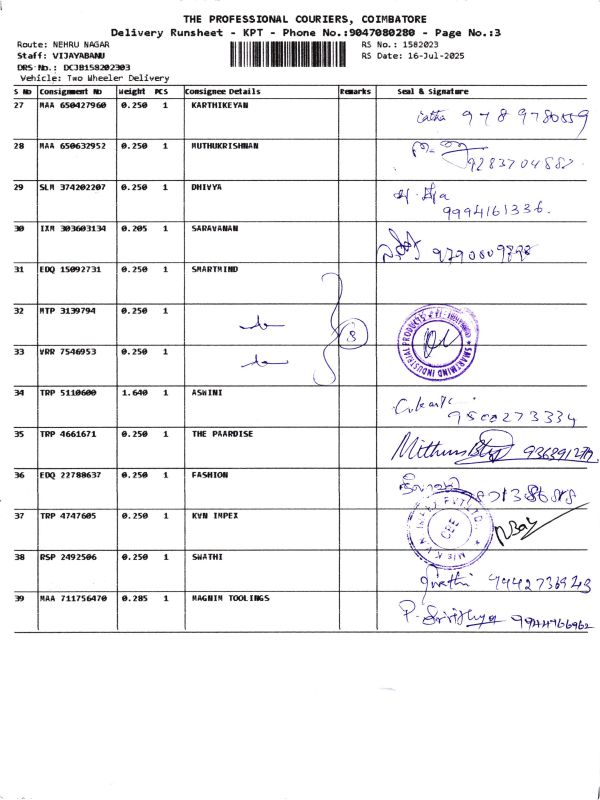 THE PROFESSIONAL COURIERS, COIMBATORE
Delivery Runsheet - KPT - Phone No.:9047080280 - Page No.:3
Route: NEHRU NAGAR RS No.: 1582023
Staff: VIJAYABANU RS Date: 16-Jul-2025
DRS No.: DCJB158202303
Vehicle: Two Wheeler Delivery
S No Consignment No Weight PCS Consignee Details Remarks Seal & Signature
27 MAA 650427960 0.250 1 KARTHIKEYAN Latha 9789780559
28 MAA 650632952 0.250 1 MUTHUKRISHNAN 9283704882
29 SLM 374202207 0.250 1 DHIVYA 9994161336.
30 IXM 303603134 0.205 1 SARAVANAN 9790809898
31 EDQ 15092731 0.250 1 SMARTMIND
32 MTP 3139794 0.250 1 do 3 SMARTMIND INDUSTRIAL PRODUCTS
33 VRR 7546953 0.250 1 do
34 TRP 5110600 1.640 1 ASWINI 9500273334
35 TRP 4661671 0.250 1 THE PAARDISE Mithun
36 EDQ 22788637 0.250 1 FASHION
37 TRP 4747605 0.250 1 KVN IMPEX CBE
38 RSP 2492506 0.250 1 SWATHI Swathi 9442736943
39 MAA 711756470 0.285 1 MAGNIM TOOLINGS P. Srividhya 9944766962